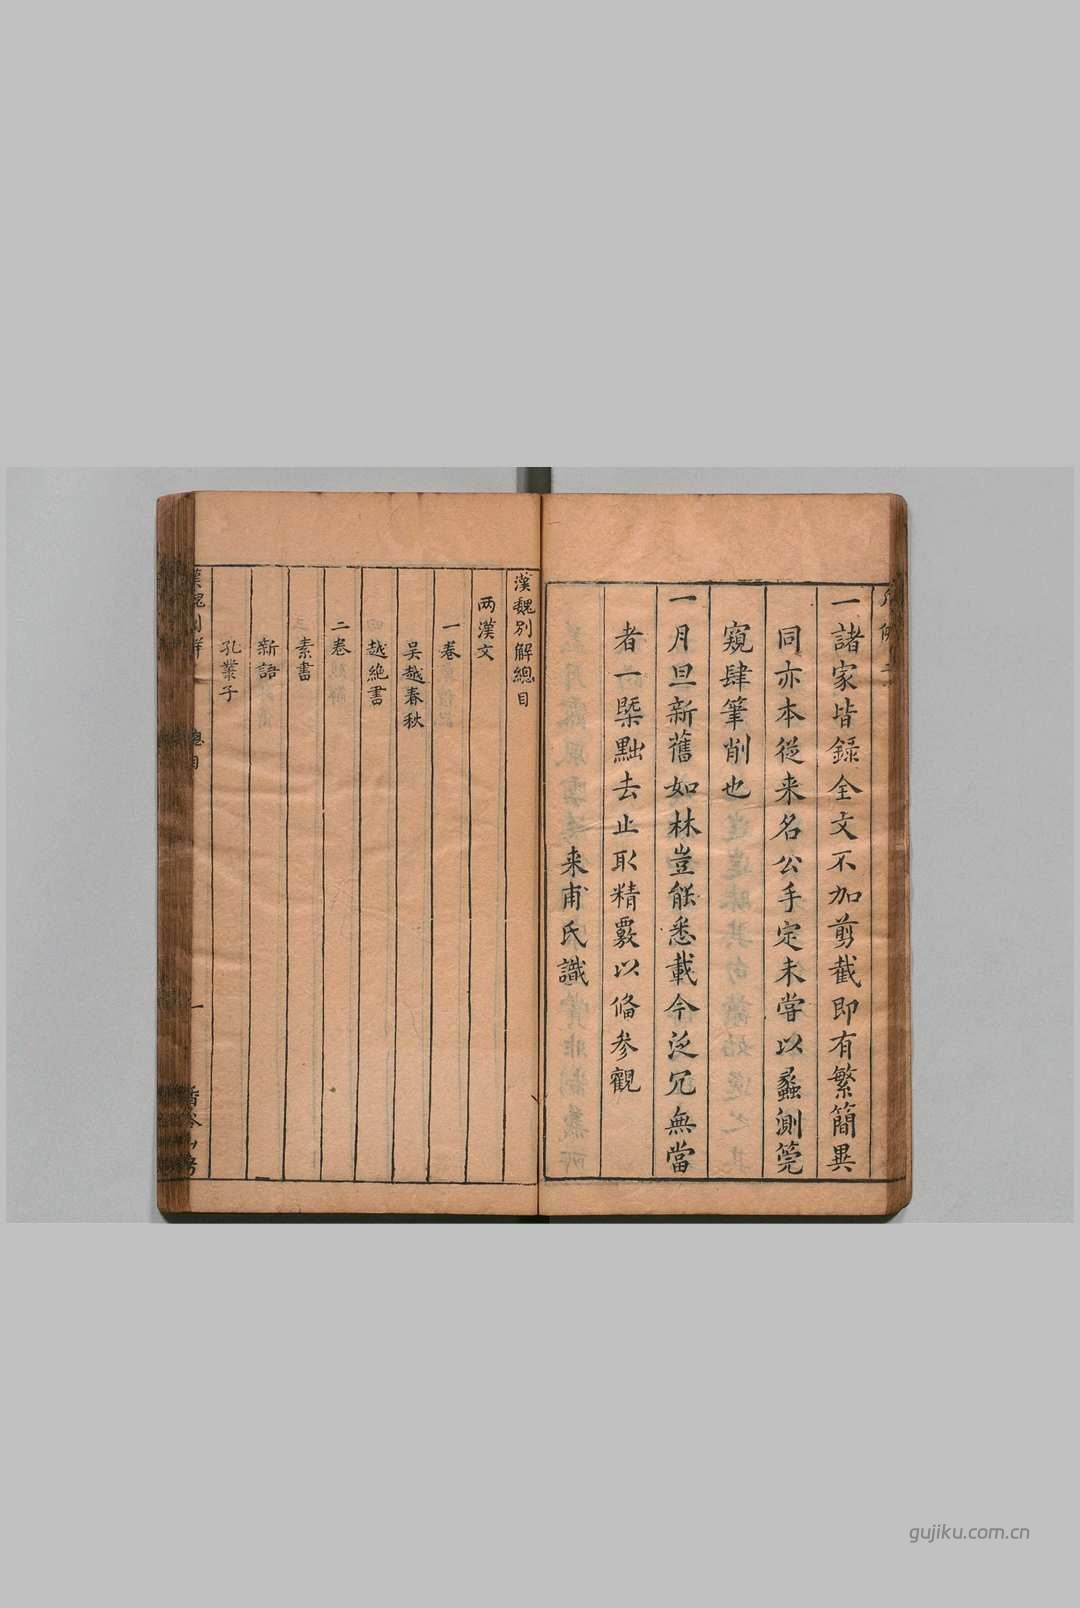 一諸家皆錄全文不加剪截即有繁簡異
同亦本從来名公手定未嘗以蠡測筦
窺肆筆削也
一月旦新舊如林豈能悉載今泛冗無當
者一槩黜去止取精覈以俻參觀
来甫氏識
漢魏別解總目
两漢文
一卷
吴越春秋
越絶書
二卷
素書
新語
孔叢子
總目
一
gujiku.com.cn